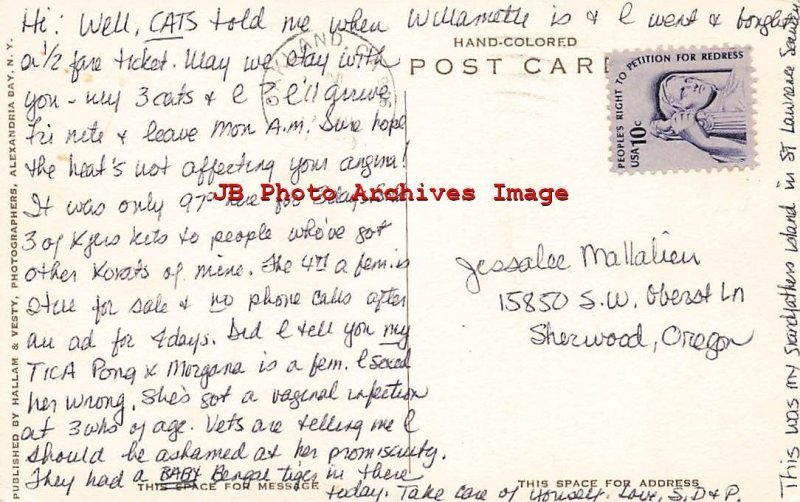 Hi! Well, CATS told me when Willamette is & I went & bought
a 1/2 fare ticket. May we stay with
you - my 3 cats & I? I'll arrive
Fri nite & leave Mon A.M. Sure hope
the heat's not affecting your angina!
It was only 97° here for 3 days. Sold
3 of Kyers kits to people who've got
other Korats of mine. The 4th a fem. is
still for sale & no phone calls after
an ad for 4 days. Did I tell you my
TICA Pong x Morgana is a fem. I sexed
her wrong. She's got a vaginal infection
at 3 wks of age. Vets are telling me I
should be ashamed at her promiscuity.
They had a BABY Bengal tiger in there
today. Take care of yourself. Love, S, D & P.
HAND-COLORED
POST CARD
OAKLAND, CA
PEOPLE'S RIGHT TO PETITION FOR REDRESS
USA 10c
JB Photo Archives Image
Jessalee Mallalieu
15850 S.W. Oberst Ln
Sherwood, Oregon
This was my grandfathers island in St Lawrence Seaway
PUBLISHED BY HALLAM & VESTY, PHOTOGRAPHERS, ALEXANDRIA BAY, N. Y.
THIS SPACE FOR MESSAGE
THIS SPACE FOR ADDRESS